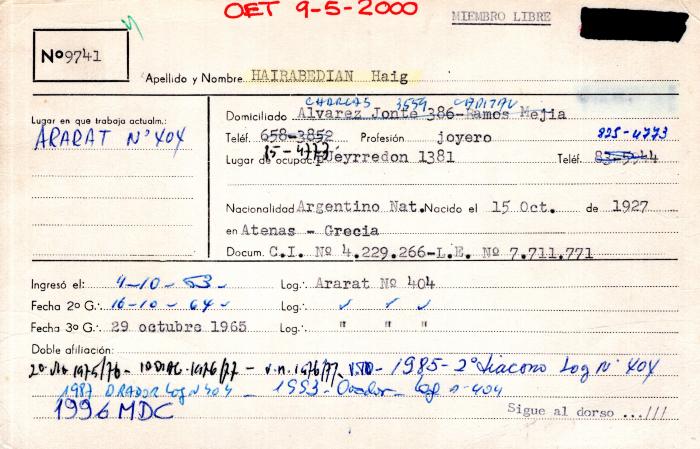 OET 9-5-2000
MIEMBRO LIBRE
Nº 9741
Apellido y Nombre HAIRABEDIAN Haig
CHARCAS 3559 CAPITAL
Lugar en que trabaja actualm.:
ARARAT Nº 404
Domiciliado Alvarez Jonte 386-Ramos Mejia
Teléf. 658-3852 Profesión joyero 825-4773
Lugar de ocupac. Pueyrredon 1381 Teléf.
Nacionalidad Argentino Nat. Nacido el 15 Oct. de 1927
en Atenas - Grecia
Docum. C.I. Nº 4.229.266-L.E. Nº 7.711.771
Ingresó el: 4-10-63 Log∴ Ararat Nº 404
Fecha 2º G∴ 16-10-64 Log∴ ✓ ✓ ✓
Fecha 3º G∴ 29 octubre 1965 Log∴ " " "
Doble afiliación:
1975/76 - 1976/77 - 1976/77 - 1985-2º Diacono Log Nº 404
1987 ORADOR Log Nº 404 - 1993-Orador- Log nº 404
1996 MDC
Sigue al dorso ...///